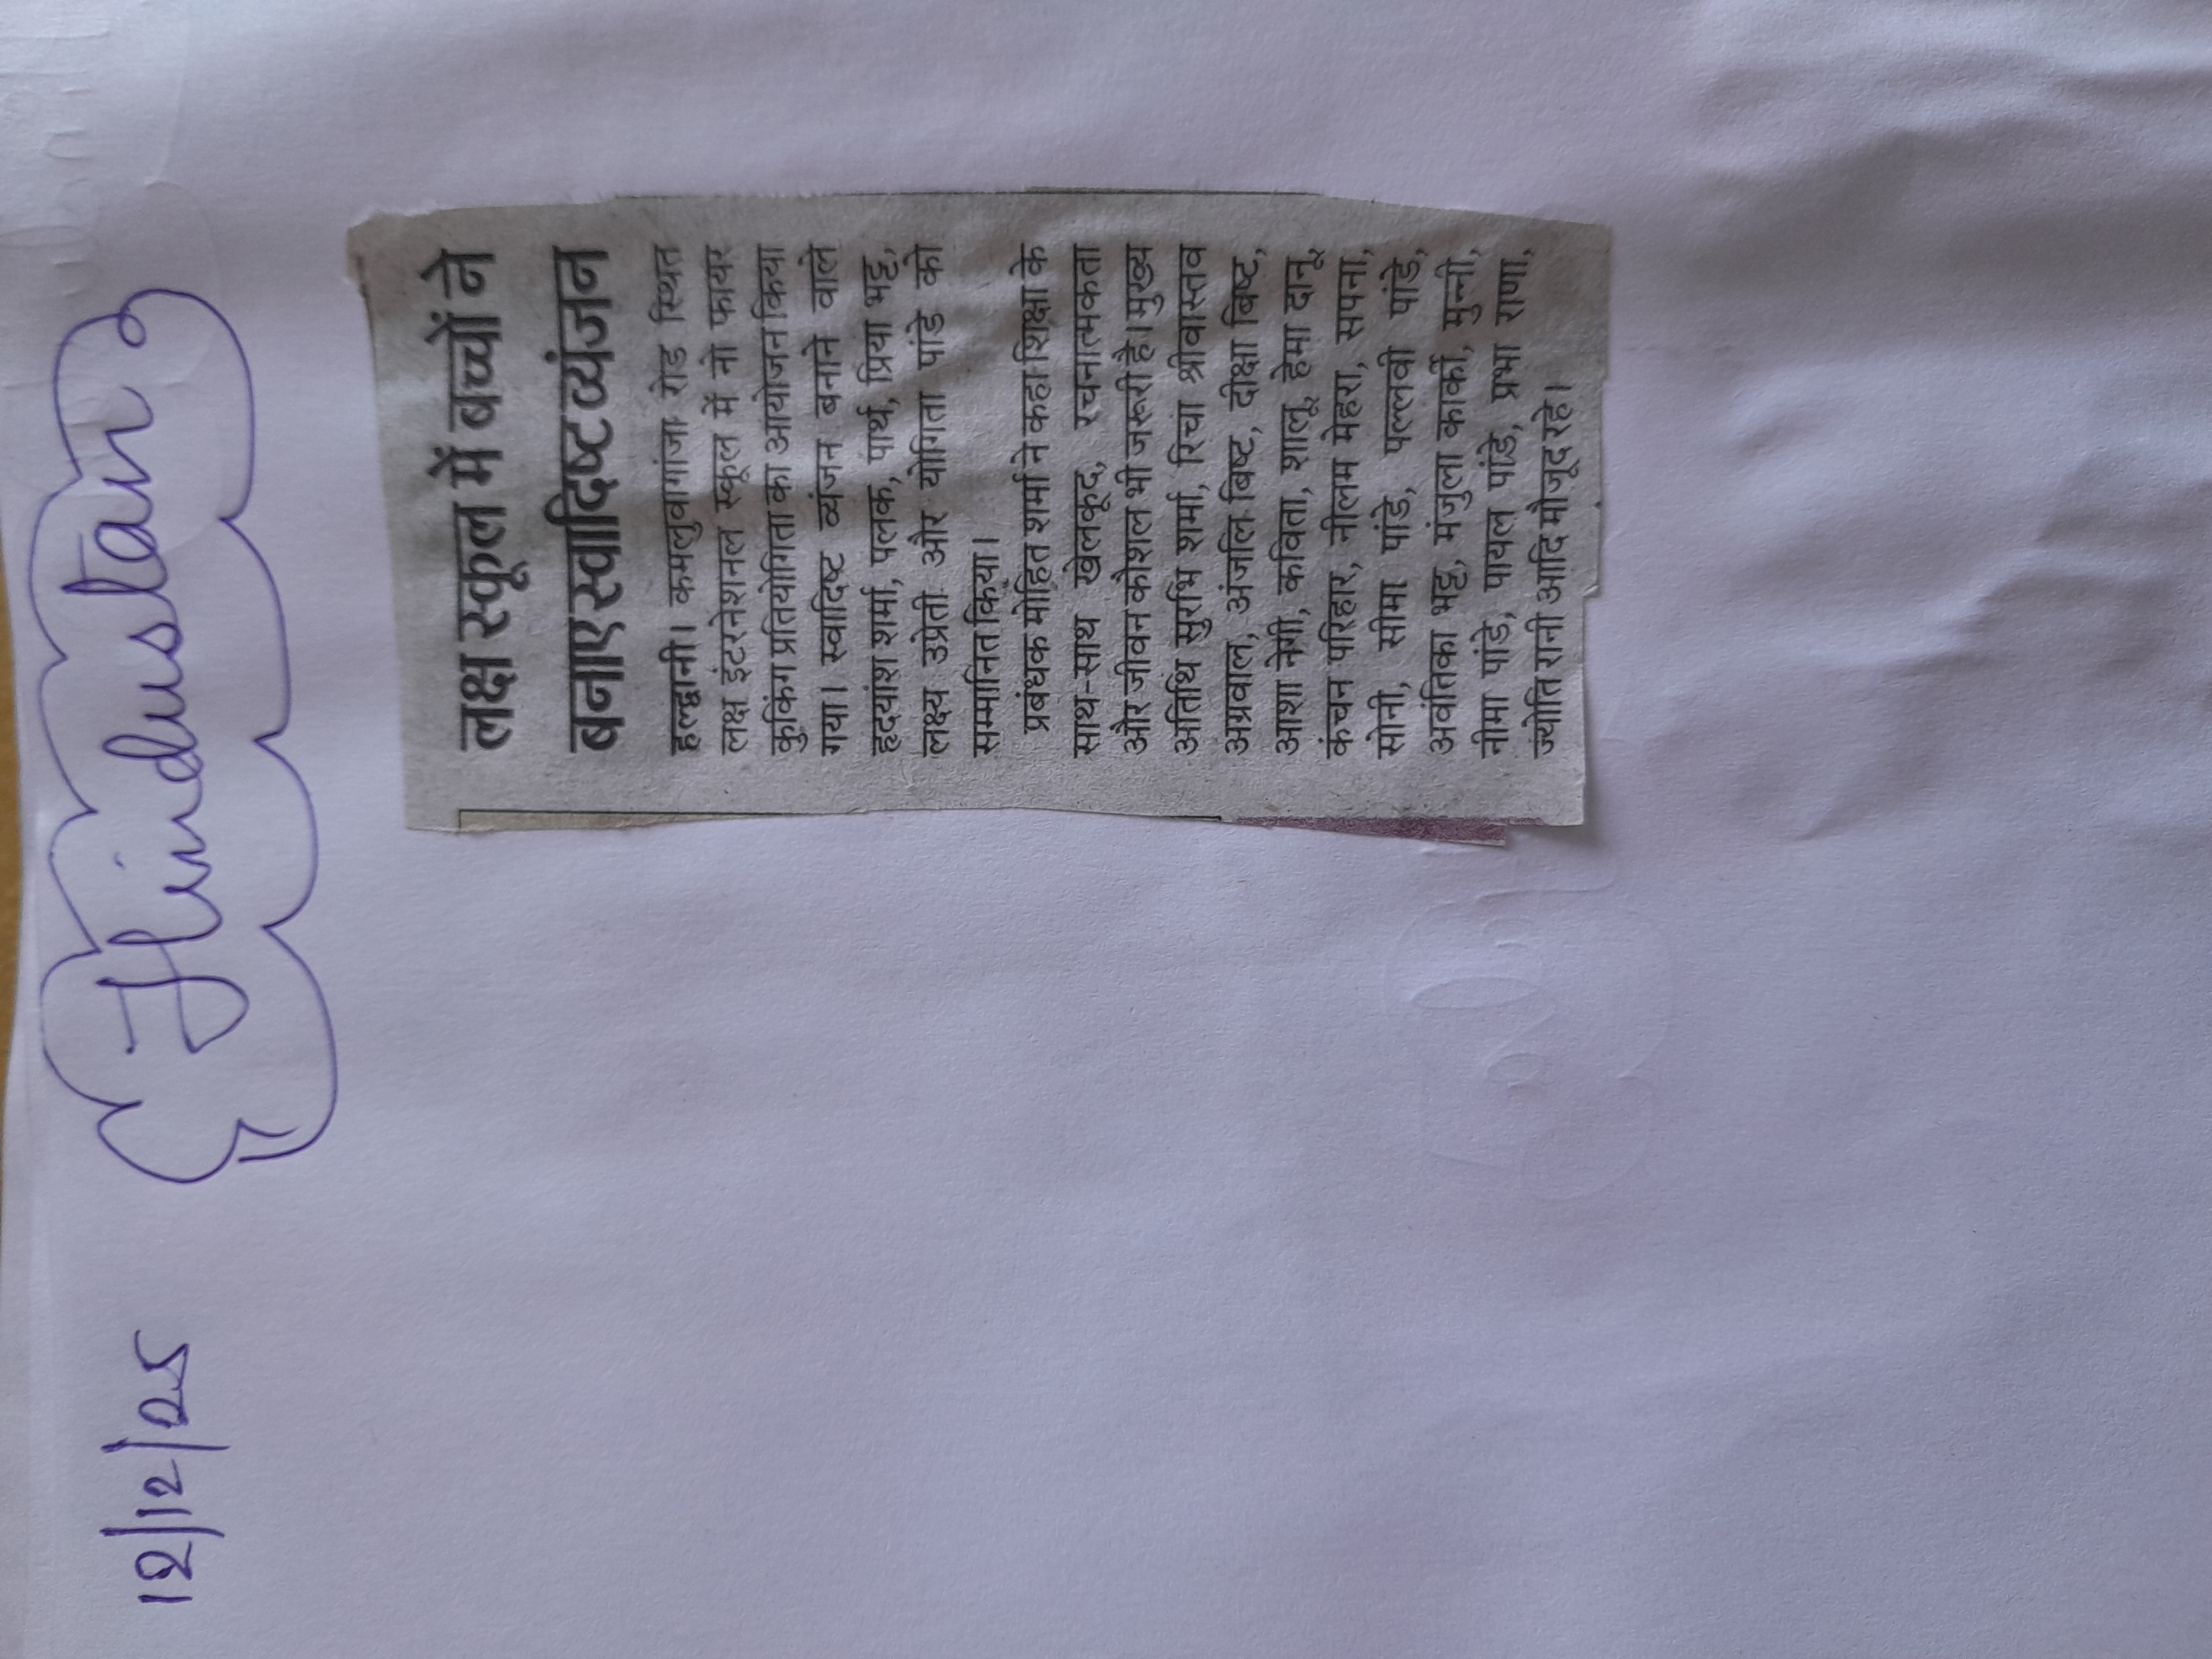 12/12/25
Hindustan
लक्ष स्कूल में बच्चों ने
बनाए स्वादिष्ट व्यंजन
हल्द्वानी। कमलुवागांजा रोड स्थित
लक्ष इंटरनेशनल स्कूल में नो फायर
कुकिंग प्रतियोगिता का आयोजन किया
गया। स्वादिष्ट व्यंजन बनाने वाले
हृदयांश शर्मा, पलक, पार्थ, प्रिया भट्ट,
लक्ष्य उप्रेती और योगिता पांडे को
सम्मानित किया।
प्रबंधक मोहित शर्मा ने कहा शिक्षा के
साथ-साथ खेलकूद, रचनात्मकता
और जीवन कौशल भी जरूरी है। मुख्य
अतिथि सुरभि शर्मा, रिचा श्रीवास्तव
अग्रवाल, अंजलि बिष्ट, दीक्षा बिष्ट,
आशा नेगी, कविता, शालू, हेमा दानू,
कंचन परिहार, नीलम मेहरा, सपना,
सोनी, सीमा पांडे, पल्लवी पांडे,
अवंतिका भट्ट, मंजुला कार्की, मुन्नी,
नीमा पांडे, पायल पांडे, प्रभा राणा,
ज्योति रानी आदि मौजूद रहे।